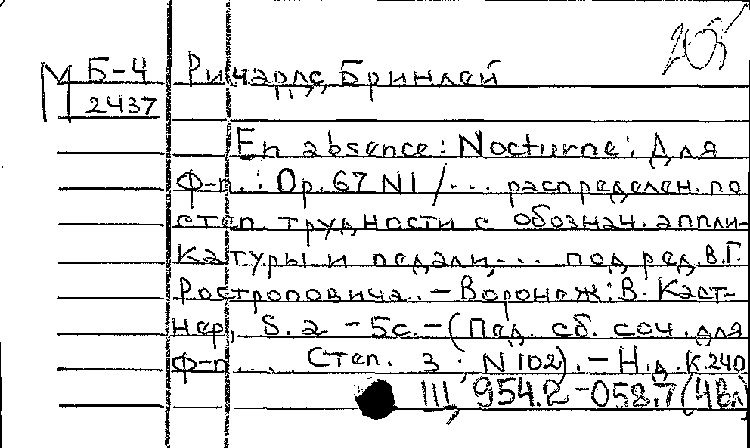 205
М Б-4 Ричардс, Бринлей
2437
En absence: Nocturne: Для
ф-п.: Op. 67 N1 /... распределен. по
степ. трудности с обознач. аппли-
катуры и педали,... под ред. В.Г.
Ростроповича. - Воронеж: В. Каст-
нер, S. a. - 5с. - (Пед. сб. соч. для
ф-п... Степ. 3; N 102). - Н.д. К.240
III, 954.2-058.7 (4вл)